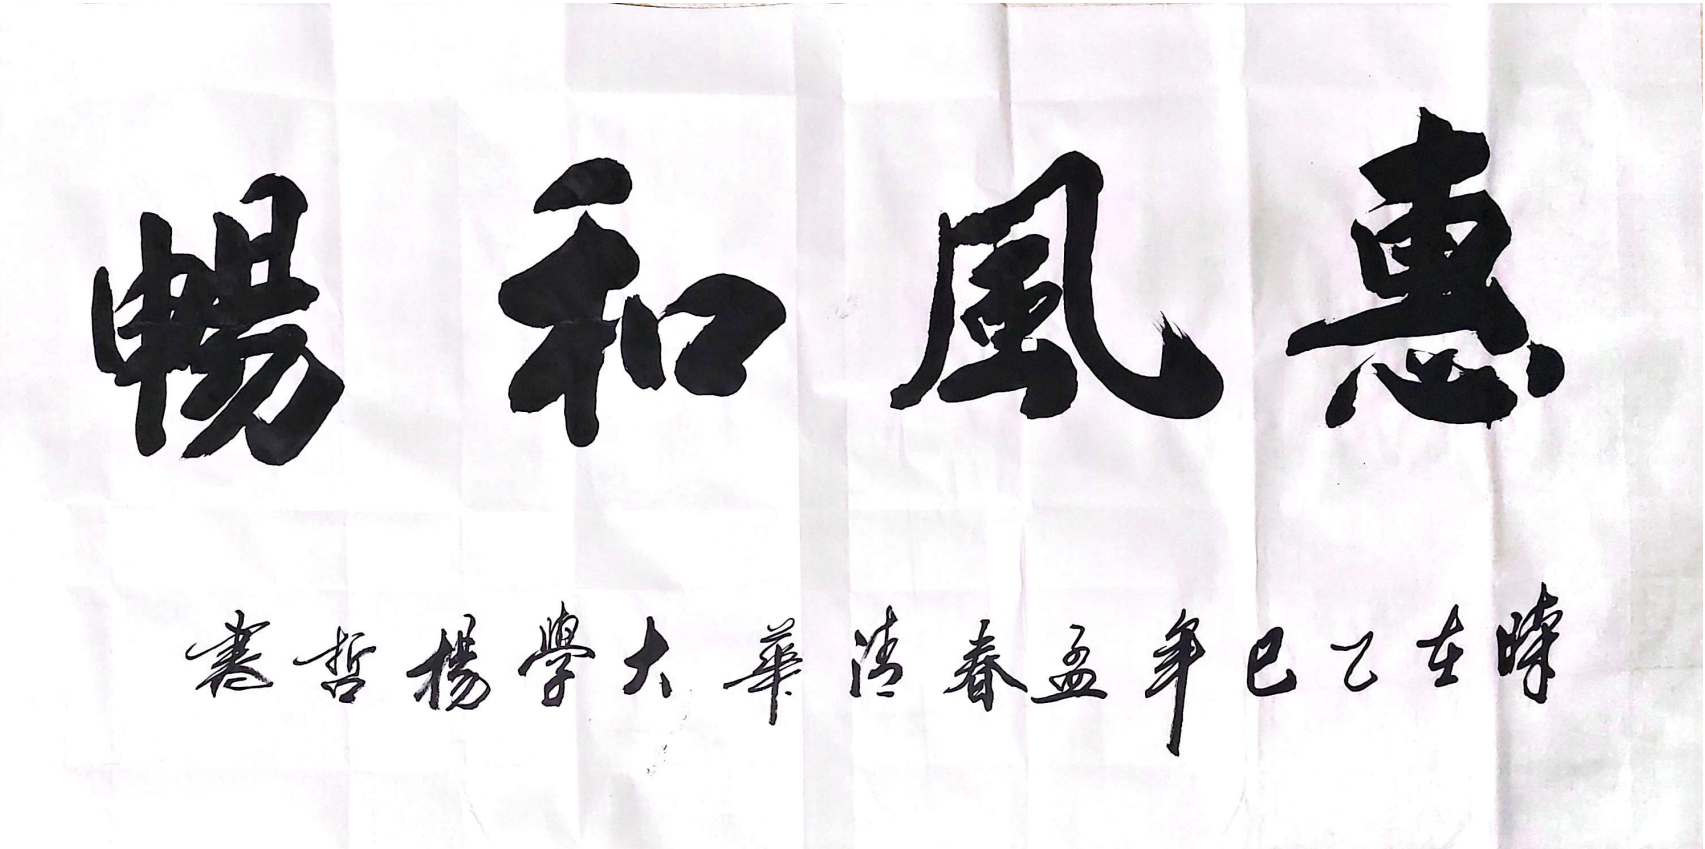 惠風和暢
時在乙巳年孟春清華大學楊哲書